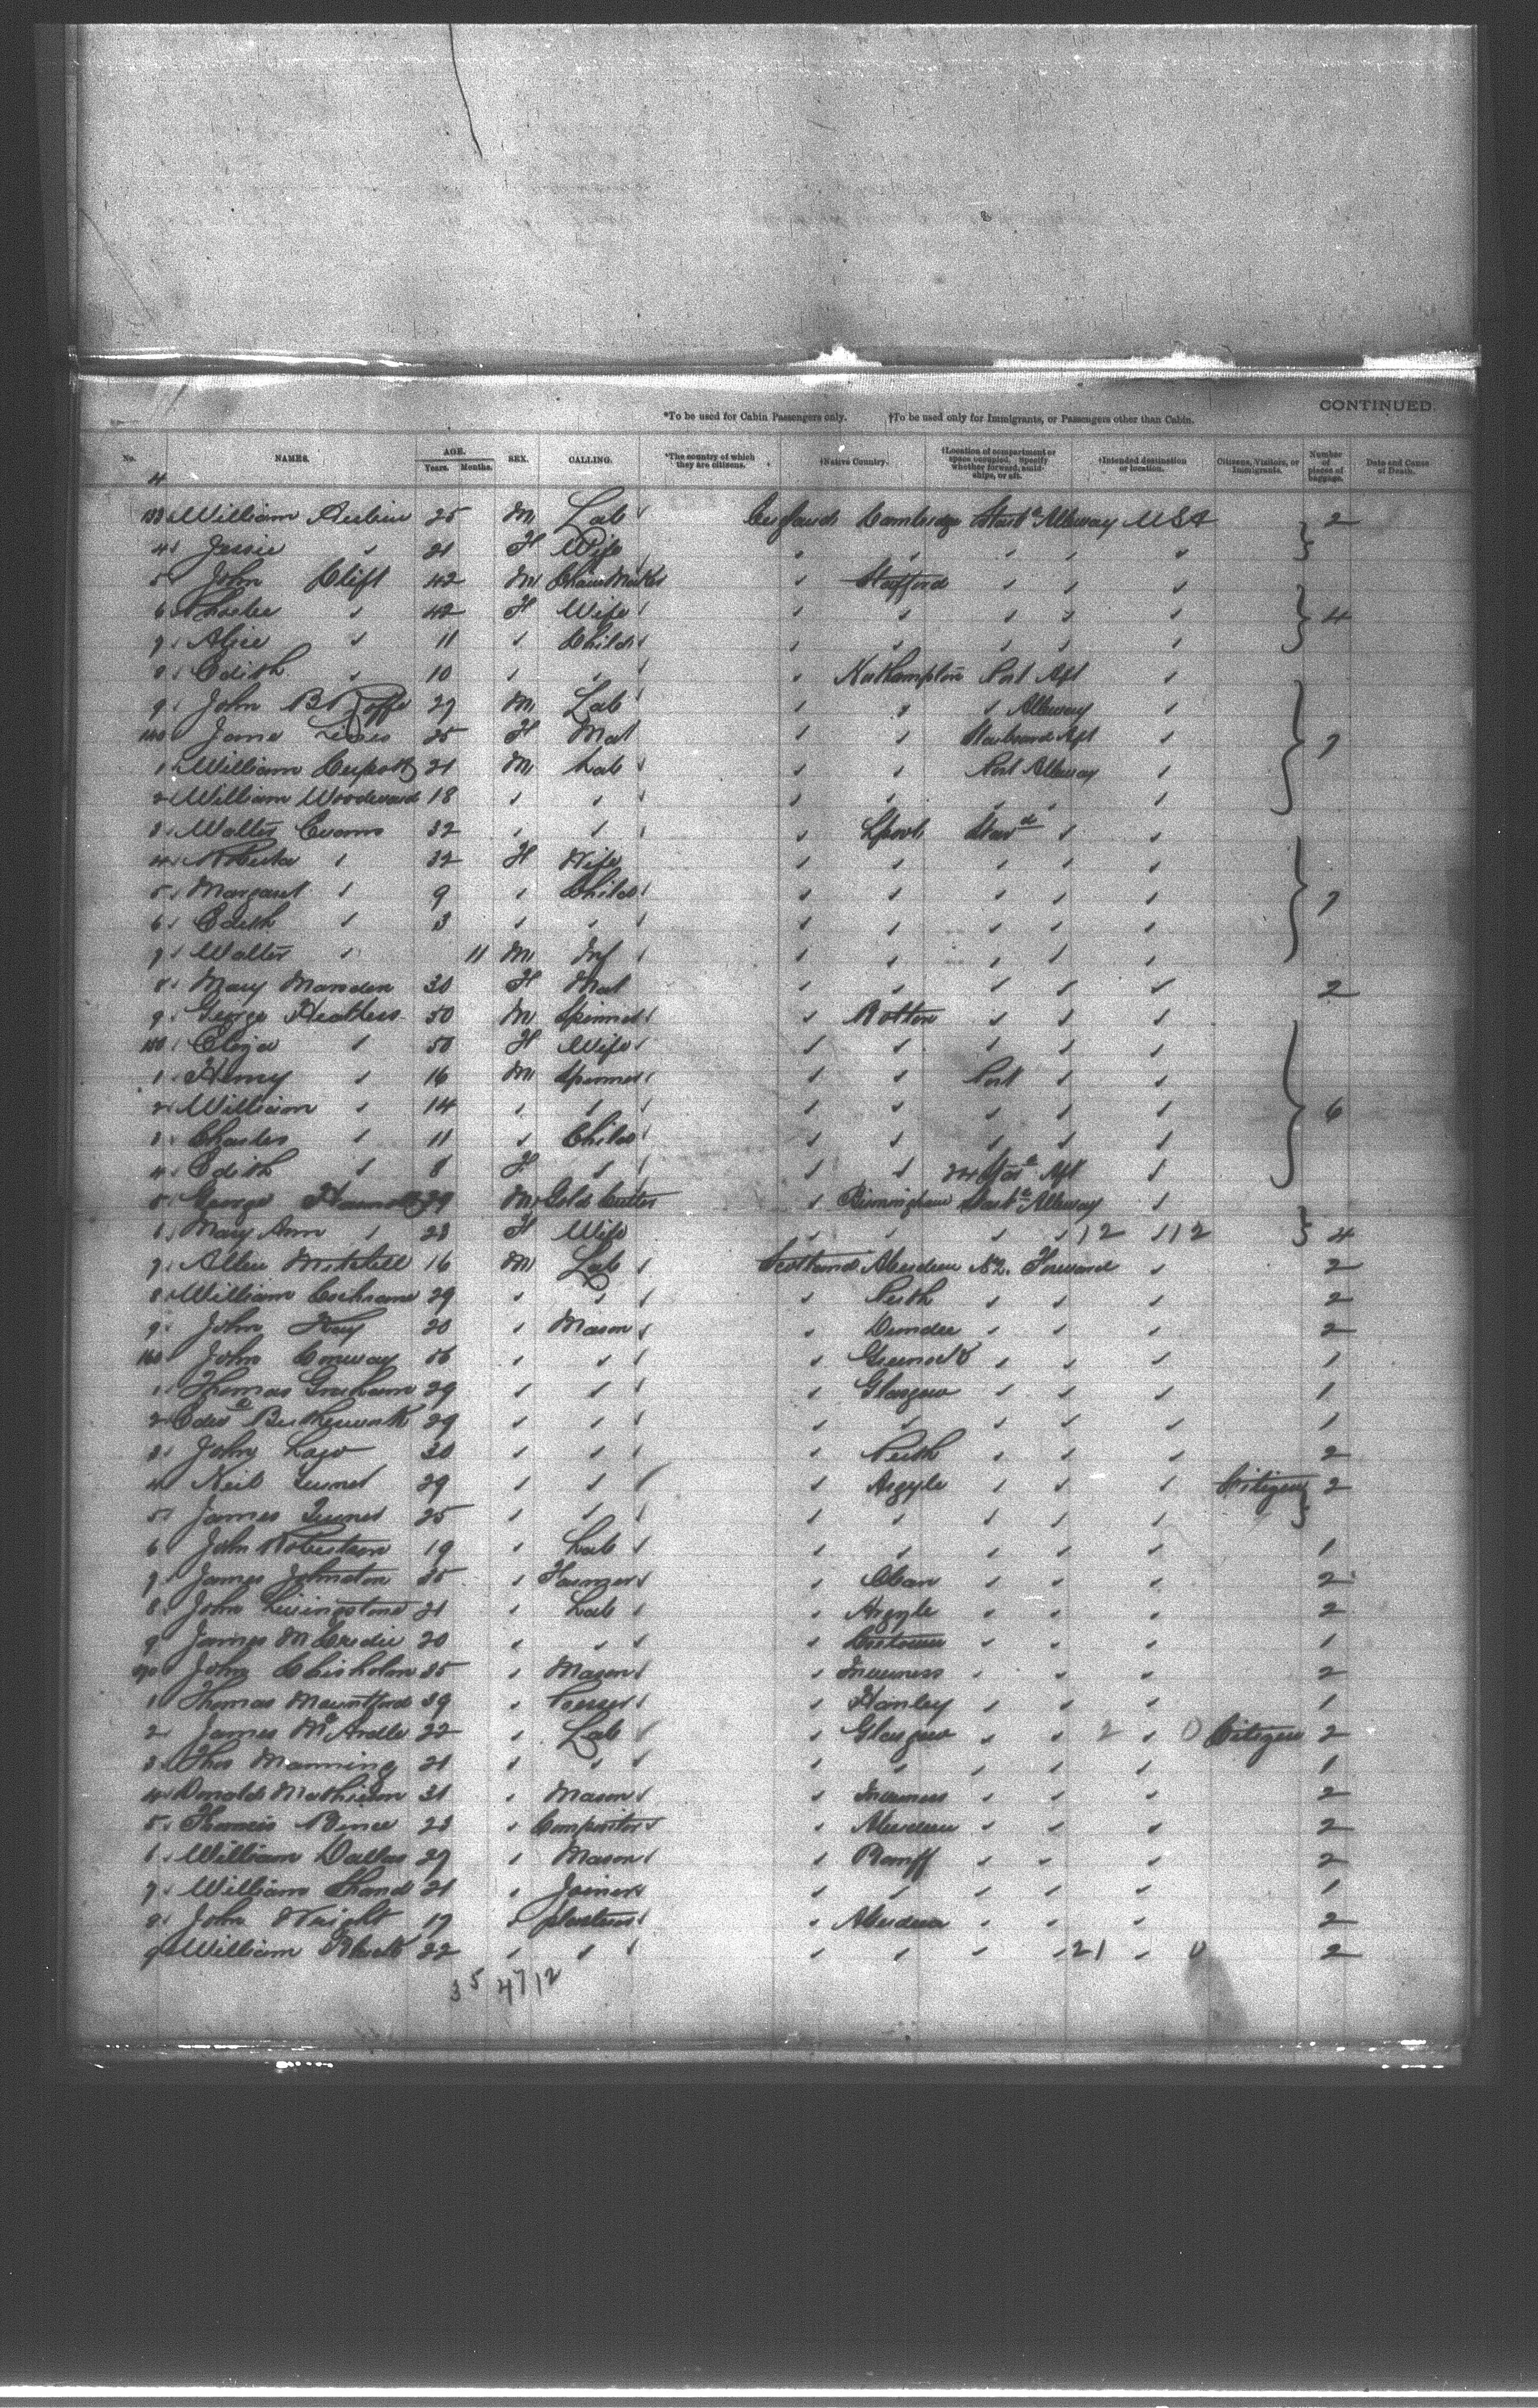 CONTINUED.
*To be used for Cabin Passengers only. †To be used only for Immigrants, or Passengers other than Cabin.
No. NAMES. AGE. Years. Months. SEX. CALLING. *The country of which they are citizens. †Native Country. †Location of compartment or space occupied. Specify whether forward, amidships, or aft. †Intended destination or location. Citizens, Visitors, or Immigrants. Number of pieces of baggage. Date and Cause of Death.
4
William 25 M Lab England Starb Alleway USA 2
4 Jessie 21 F Wife
5 John Clift 42 M Chain Maker Stafford
6 Phoebe 42 F Wife 4
7 Alice 11 Child
8 Edith 10 Northampton Port Aft
9 John B Roffe 27 M Lab Alleway
140 Jane 25 F Mat Starboard Aft 7
1 William 21 M Lab Port Alleway
2 William Woodward 18
3 Walter Evans 32 Lpool Star d
4 32 F Wife
5 Margaret 9 Child 7
6 Edith 3
7 Walter 11 M Inf
8 Mary Marsden 30 F Mat 2
9 George Heathers 50 M Spinner Bolton
150 Eliza 50 F Wife
1 Henry 16 M Spinner Port
2 William 14 6
3 Charles 11 Child
4 Edith 8 F Aft
5 George 29 M Gold Cutter Birmingham Starb d Alleway
6 Mary Ann 23 F Wife 12 112 4
7 Allen Mitchell 16 M Lab Scotland Aberdeen No 2. Forward 2
8 William Cochrane 29 Perth 2
9 John Kay 20 Mason Dundee 2
160 John Conway 56 Greenock 1
1 Thomas Graham 29 Glasgow 1
2 Edw d Butterworth 29 1
3 John Law 30 Perth 2
4 Neil Turner 29 Argyle Citizen 2
5 James Turner 25
6 John Robertson 19 Lab 1
7 James Johnston 35 Farmer Oban 2
8 John Livingstone 21 Lab Argyle 2
9 James McCredie 20 1
170 John Chisholm 35 Mason Inverness 2
1 Thomas Mountford 39 Presser Hanley 1
2 James McArdle 22 Lab Glasgow 2 0 Citizen 2
3 Thos Manning 21 1
4 Donald Mathieson 31 Mason Inverness 2
5 23 Compositor Aberdeen 2
6 William Dallas 27 Mason Banff 2
7 William Shand 21 Joiner 1
8 John Wright 19 plasterer Aberdeen 2
9 William 22 21 0 2
35 47 12